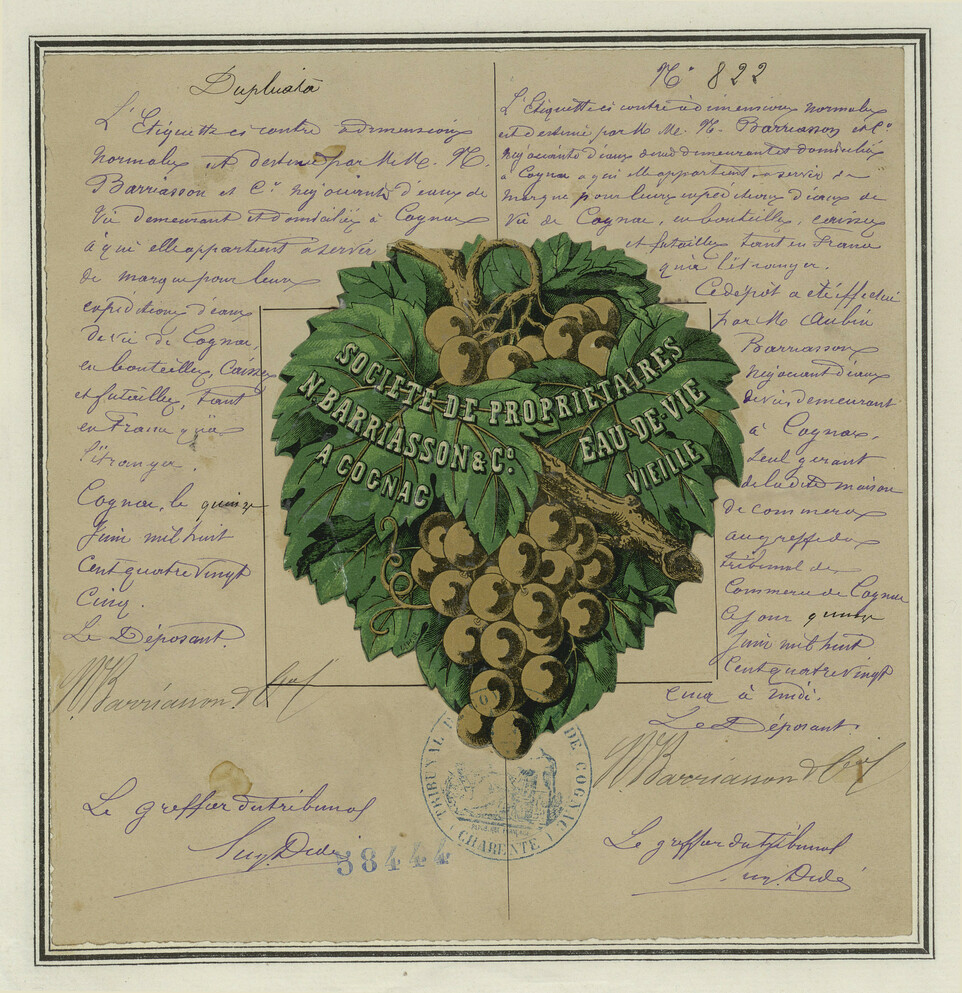 Duplicata
L'Etiquette ci contre à dimensions
normales est destinée par M.M. N.
Barriasson et Cie négociants d'eaux de
Vie demeurant et domiciliés à Cognac
à qui elle appartient à servir
de marque pour leurs
expéditions d'eaux
de Vie de Cognac,
en bouteilles, Caisses
et futailles, tant
en France qu'à
l'étranger.
Cognac, le quinze
Juin mil huit
Cent quatre vingt
Cinq.
Le Déposant.
N. Barriasson &
Le greffier du tribunal
58444
N° 822
L'Etiquette ci contre à dimensions normales
est destinée par M M. N. Barriasson et Cie
négociants d'eaux de vie demeurants et domiciliés
à Cognac à qui elle appartient à servir de
marque pour leurs expéditions d'eaux de
Vie de Cognac, en bouteilles, caisses
et futailles tant en France
qu'à l'étranger.
Ce dépôt a été effectué
par M. Aubin
Barriasson
Négociant d'eaux
de vie, demeurant
à Cognac,
Seul gérant
de la dite maison
de commerce
au greffe du
tribunal de
Commerce de Cognac
ce jour quinze
Juin mil huit
Cent quatre vingt
Cinq à midi.
Le Déposant.
N. Barriasson &
Le greffier du Tribunal
SOCIETE DE PROPRIÉTAIRES
N. BARRIASSON & Co.
A COGNAC
EAU-DE-VIE
VIEILLE
TRIBUNAL DE COGNAC
(CHARENTE)